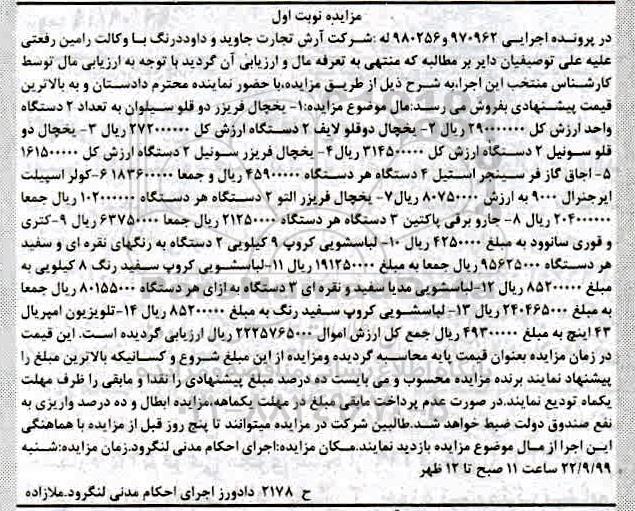 مزایده نوبت اول
در پرونده اجرایی ۹۷۰۹۶۲ و۹۸۰۲۵۶ له :شرکت آرش تجارت جاوید و داوددرنگ با وکالت رامین رفعتی
علیه علی توصیفیان دایر بر مطالبه که منتهی به تعرفه مال و ارزیابی آن گردید با توجه به ارزیابی مال توسط
کارشناس منتخب این اجرا،به شرح ذیل از طریق مزایده،با حضور نماینده محترم دادستان و به بالاترین
قیمت پیشنهادی بفروش می رسد:مال موضوع مزایده:۱- یخچال فریزر دو قلو سیلوان به تعداد ۲ دستگاه
واحد ارزش کل ۲۹۰۰۰۰۰۰۰ ریال ۲- یخچال دوقلو لایف ۲ دستگاه ارزش کل ۲۷۲۰۰۰۰۰۰ ریال ۳- یخچال دو
قلو سونیل ۲ دستگاه ارزش کل ۳۱۴۵۰۰۰۰۰ ریال۴- یخچال فریزر سونیل ۲ دستگاه ارزش کل ۱۶۱۵۰۰۰۰۰
۵- اجاق گاز فر سینجر استیل ۴ دستگاه هر دستگاه ۴۵۹۰۰۰۰۰ ریال و جمعا ۱۸۳۶۰۰۰۰۰ ۶-کولر اسپیلت
ایرجنرال ۹۰۰۰ به ارزش ۸۰۷۵۰۰۰۰ ریال۷- یخچال فریزر التو ۲ دستگاه هر دستگاه ۱۰۲۰۰۰۰۰۰ ریال جمعا
۲۰۴۰۰۰۰۰۰ ریال ۸- جارو برقی پاکتین ۳ دستگاه هر دستگاه ۲۱۲۵۰۰۰۰ ریال جمعا ۶۳۷۵۰۰۰۰ ریال ۹-کتری
و قوری سانوود به مبلغ ۴۲۵۰۰۰۰ ریال ۱۰- لباسشویی کروپ ۹ کیلویی ۲ دستگاه به رنگهای نقره ای و سفید
هر دستگاه ۹۵۶۲۵۰۰۰ ریال جمعا به مبلغ ۱۹۱۲۵۰۰۰۰ ریال ۱۱-لباسشویی کروپ سفید رنگ ۸ کیلویی به
مبلغ ۸۵۲۰۰۰۰۰ ریال ۱۲-لباسشویی مدیا سفید و نقره ای ۳ دستگاه به ازای هر دستگاه ۸۰۱۵۵۰۰۰ ریال جمعا
به مبلغ ۲۴۰۴۶۵۰۰۰ ریال ۱۳- لباسشویی کروپ سفید رنگ به مبلغ ۸۵۲۰۰۰۰۰ ریال ۱۴-تلویزیون امپریال
۴۳ اینچ به مبلغ ۴۹۳۰۰۰۰۰ ریال جمع کل ارزش اموال ۲۲۲۵۷۶۵۰۰۰ ریال ارزیابی گردیده است. این قیمت
در زمان مزایده بعنوان قیمت پایه محاسبه گردیده ومزایده از این مبلغ شروع و کسانیکه بالاترین مبلغ را
پیشنهاد نمایند برنده مزایده محسوب و می بایست ده درصد مبلغ پیشنهادی را نقدا و مابقی را ظرف مهلت
یکماه تودیع نمایند.در صورت عدم پرداخت مابقی مبلغ در مهلت یکماهه،مزایده ابطال و ده درصد واریزی به
نفع صندوق دولت ضبط خواهد شد.طالبین شرکت در مزایده میتوانند تا پنج روز قبل از مزایده با هماهنگی
این اجرا از مال موضوع مزایده بازدید نمایند.مکان مزایده:اجرای احکام مدنی لنگرود.زمان مزایده:شنبه
۲۲/۹/۹۹ ساعت ۱۱ صبح تا ۱۲ ظهر
ح ۲۱۷۸ دادورز اجرای احکام مدنی لنگرود.ملازاده